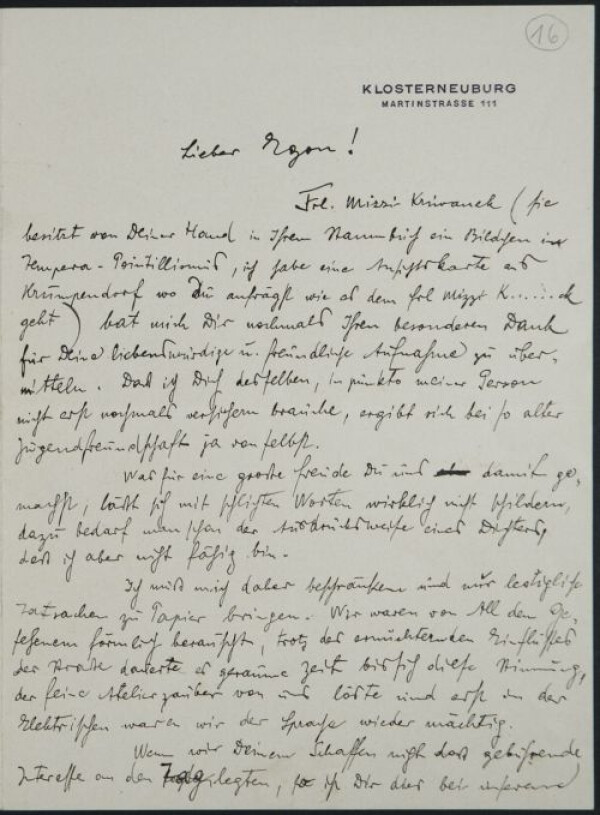 16
KLOSTERNEUBURG
MARTINSTRASSE 111
Lieber Egon!
Frl. Mizzi Kriwanek (sie
besitzt von Deiner Hand in Ihrem Stammbuch ein Bildchen in
Tempera-Pointillismus, ich habe eine Ansichtskarte aus
Krumpendorf wo Du anfrägst wie es dem Frl Mizzi K......ek
geht) bat mich Dir nochmals Ihren besonderen Dank
für Deine liebenswürdige u. freundliche Aufnahme zu über-
mitteln. Das ich Dich desselben, in punkto meiner Person
nicht erst nochmals versichern brauche, ergibt sich bei so alter
Jugendfreundschaft ja von selbst.
Was für eine grosse Freude Du uns damit ge-
machst, lässt sich mit schlichten Worten wirklich nicht schildern,
dazu bedarf man schon der Ausdrucksweise eines Dichters,
dass ich aber nicht fähig bin.
Ich muss mich daher beschränken und nur lediglich
Tatsachen zu Papier bringen. Wir waren von All den Ge-
sehenem förmlich berauscht, trotz des ernüchternden Einflusses
der Strasse dauerte es geraume Zeit bis sich diese Stimmung,
der feine Atelierzauber von uns löste und erst in der
Elektrischen waren wir der Sprache wieder mächtig.
Wenn wir Deinem Schaffen nicht das gebührende
Interesse an den Tag legten, so ist Dir dies bei unserem